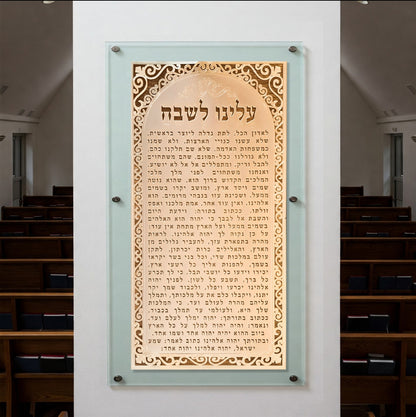 עלינו לשבח
לאדון הכל, לתת גדלה ליוצר בראשית,
שלא עשנו כגויי הארצות, ולא שמנו
כמשפחות האדמה. שלא שם חלקנו כהם
ולא גורלנו ככל-המונם. שהם משתחוים
להבל וריק, ומתפללים אל אל לא יושיע.
ואנחנו משתחוים לפני מלך מלכי
המלכים הקדוש ברוך הוא. שהוא נוטה
שמים ויסד ארץ, ומושב יקרו בשמים
ממעל, ושכינת עזו בגבהי מרומים. הוא
אלהינו, ואין עוד אחר. אמת מלכנו ואפס
זולתו, ככתוב בתורה: וידעת היום
והשבת אל לבבך כי יהוה הוא האלהים
בשמים ממעל ועל הארץ מתחת אין עוד.
על כן נקוה לך יהוה אלהינו, לראות
מהרה בתפארת עזך, להעביר גלולים מן
הארץ, והאלילים כרות יכרתון, לתקן
עולם במלכות שדי, וכל בני בשר יקראו
בשמך, להפנות אליך כל רשעי ארץ.
יכירו וידעו כל יושבי תבל, כי לך תכרע
כל ברך, תשבע כל לשון. לפניך יהוה
אלהינו יכרעו ויפלו, ולכבוד שמך יקר
יתנו, ויקבלו כלם את על מלכותך, ותמלך
עליהם מהרה לעולם ועד. כי המלכות
שלך היא, ולעולמי עד תמלך בכבוד.
ככתוב בתורתך: יהוה ימלך לעולם ועד.
ונאמר: והיה יהוה למלך על כל הארץ
ביום ההוא יהיה יהוה אחד ושמו אחד.
ובתורתך יהוה אלהינו כתוב לאמר: שמע
ישראל, יהוה אלהינו יהוה אחד: